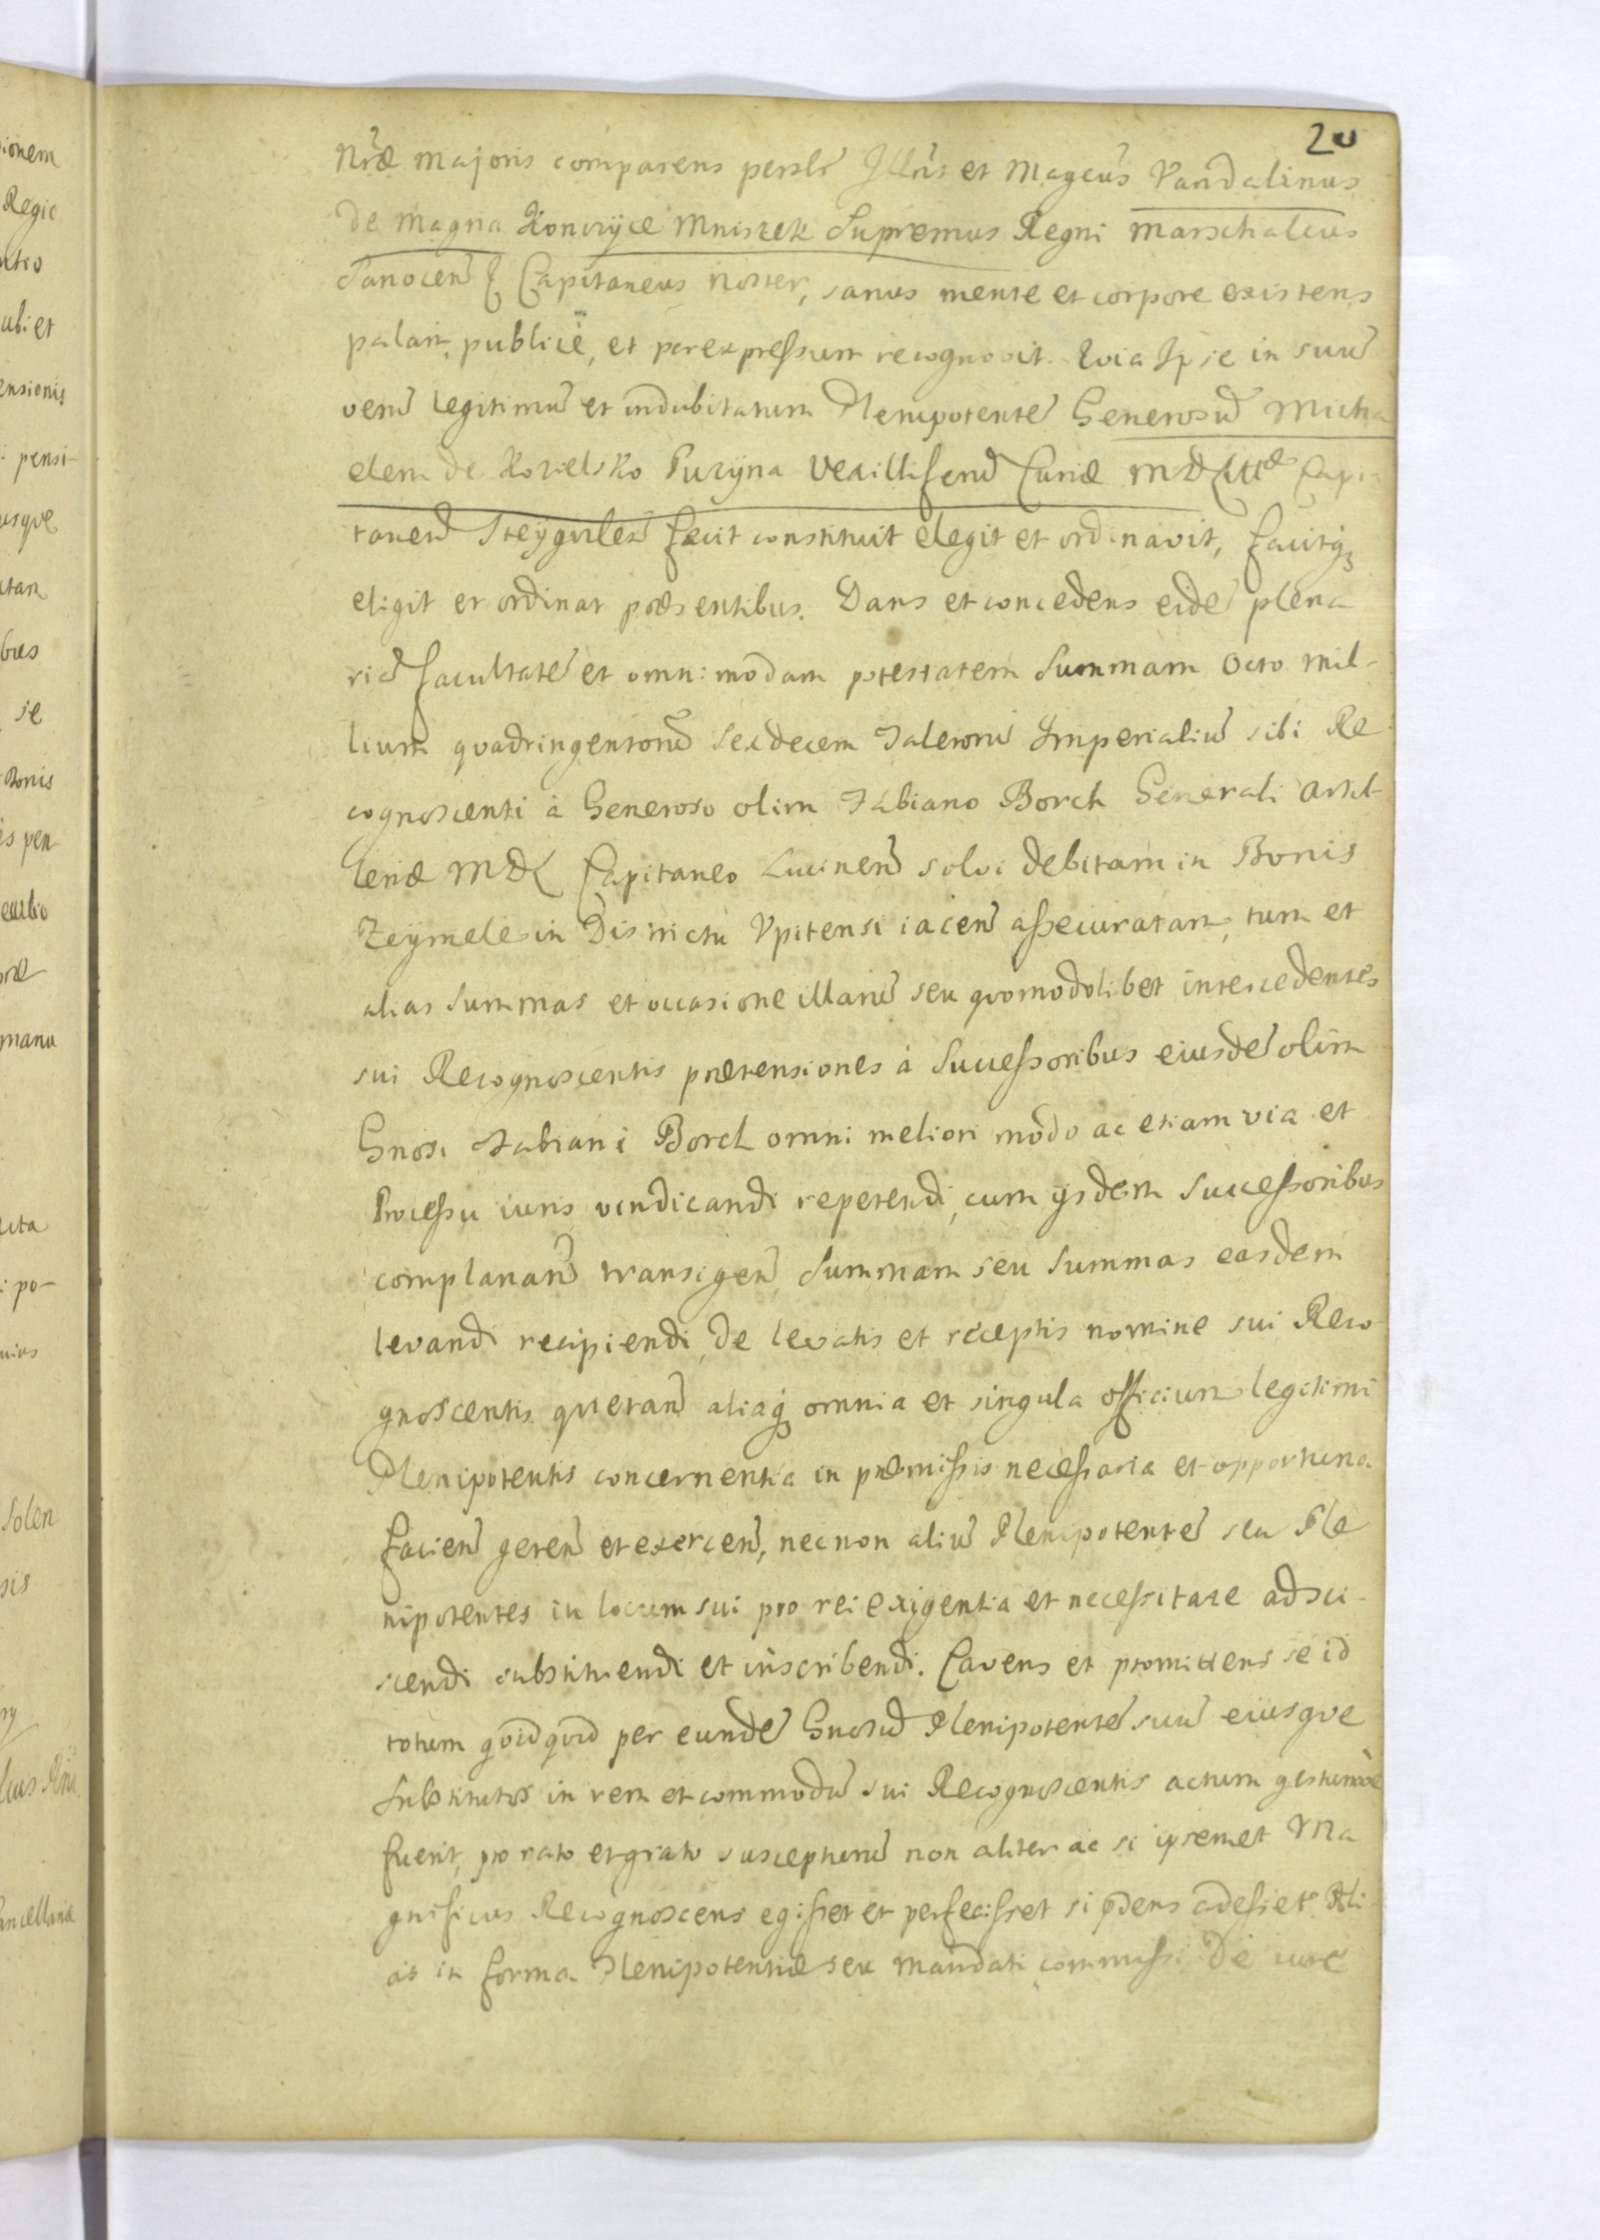 20
Nrãe majoris comparens persłr Jllris et Magcus Vandalinus
de magna Konczyce Mniszek Supremus Regni Marschalcus
Sanocen̄ & Capitaneus noster, sanus mente et corpore existens
palam, publice, et per expressum recognovit. Quia Ipse in suũ
verũ legitimũ et indubitatum Plenipotentẽ Generosũ Micha
elem de Kozielsko Puzyna Vexilliferũ Curiæ MDLittæ Capi
taneũ Steygvilen̄ fecit constituit elegit et ordinavit, facitq₃
eligit et ordinat præsentibus. Dans et concedens eidẽ plena
riã facultatẽ et omnimodam potestatem Summam Octo mil-
lium quadringentorũ Sexdecem Talerorũ Imperialiũ sibi Re
cognoscenti à Generoso olim Fabiano Borch Generali Artil
leriæ MDL Capitaneo Lucinen̄ solvi debitam in Bonis
Zeymele in Districtu Vpitensi iacen̄ assecuratam, tum et
alias Summas et occasione illarũ seu quomodolibet intercedentes
sui Recognoscentis prætensiones à Successoribus eiusdẽ olim
Gnosi Fabiani Borch omni meliori modo ac etiam via et
Processu iuris vindicandi repetendi, cum ijsdem Successoribus
complanan̄ transigen̄ Summam seu Summas easdem
levandi recipiendi, de levatis et receptis nomine sui Reco
gnoscentis quietan̄ aliaq₃ omnia et singula officium legitimi
Plenipotentis concernentia in præmissis necessaria et opportuna
facien̄ geren̄ et exercen̄, necnon aliũ Plenipotentẽ seu Ple
nipotentes in locum sui pro rei exigentia et necessitate adsci-
scendi substituendi et inscribendi. Cavens et promittens se id
totum quidquid per eundẽ Gnosũ Plenipotentẽ suũ eiusque
Substitutos in rem et commodũ sui Recognoscentis actum gestumve
fuerit, pro rato et grato suscepturũ non aliter ac si ipsemet Ma
gnificus Recognoscens egisset et perfecisset si p̃dens adesset. Ali-
as in forma Plenipotentiæ seu mandati commissi De iure